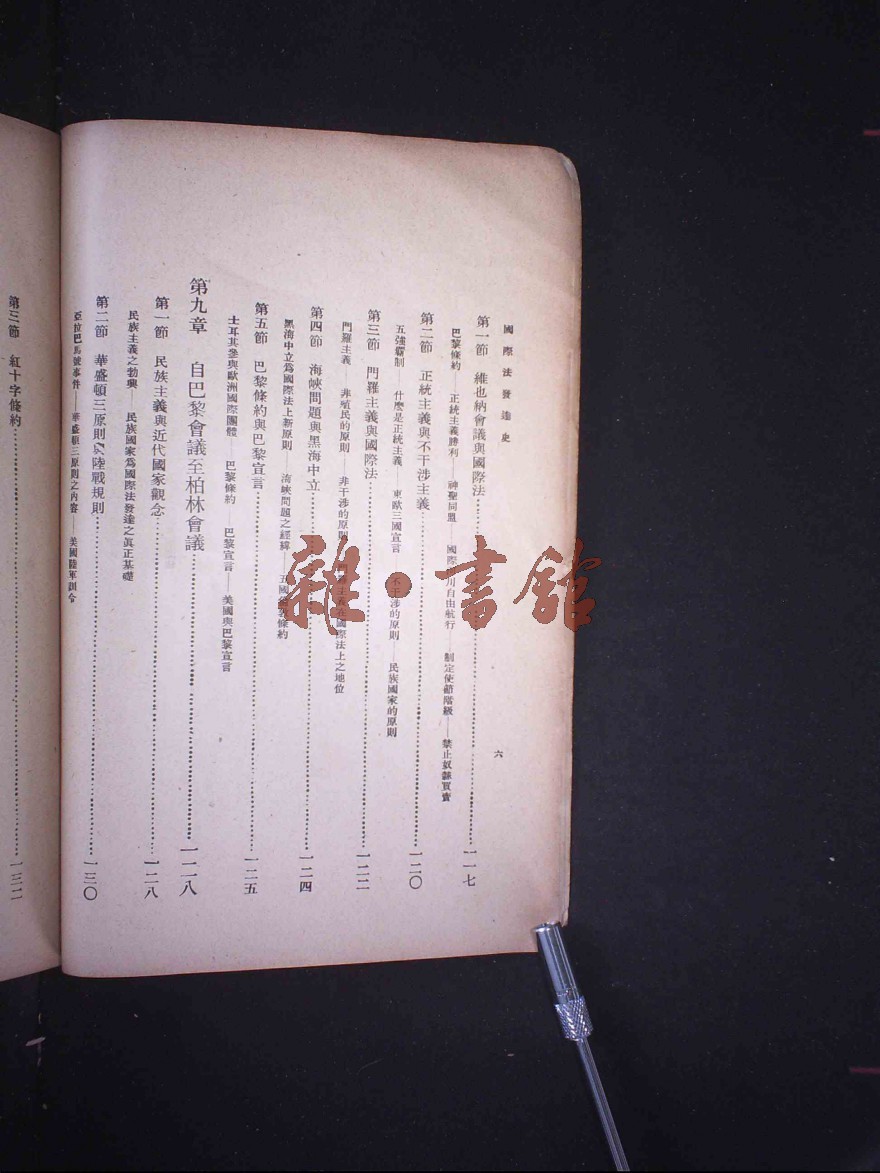 國際法發達史
六
第一節 維也納會議與國際法……一一七
巴黎條約——正統主義勝利——神聖同盟——國際川自由航行——制定使節階級——禁止奴隸買賣
第二節 正統主義與不干涉主義……一二〇
五強霸制——什麼是正統主義——東歐三國宣言——不干涉的原則——民族國家的原則
第三節 門羅主義與國際法……一二二
門羅主義——非殖民的原則——非干涉的原則——門羅主義在國際法上之地位
第四節 海峽問題與黑海中立……一二四
黑海中立為國際法上新原則——海峽問題之經緯——五國條約
第五節 巴黎條約與巴黎宣言……一二五
土耳其參與歐洲國際團體——巴黎條約——巴黎宣言——美國與巴黎宣言
第九章 自巴黎會議至柏林會議……一二八
第一節 民族主義與近代國家觀念……一二八
民族主義之勃興——民族國家爲國際法發達之眞正基礎
第二節 華盛頓三原則與陸戰規則……一三〇
亞拉巴馬號事件——華盛頓三原則之內容——美國陸軍訓令
第三節 紅十字條約……一三二
雜·書館